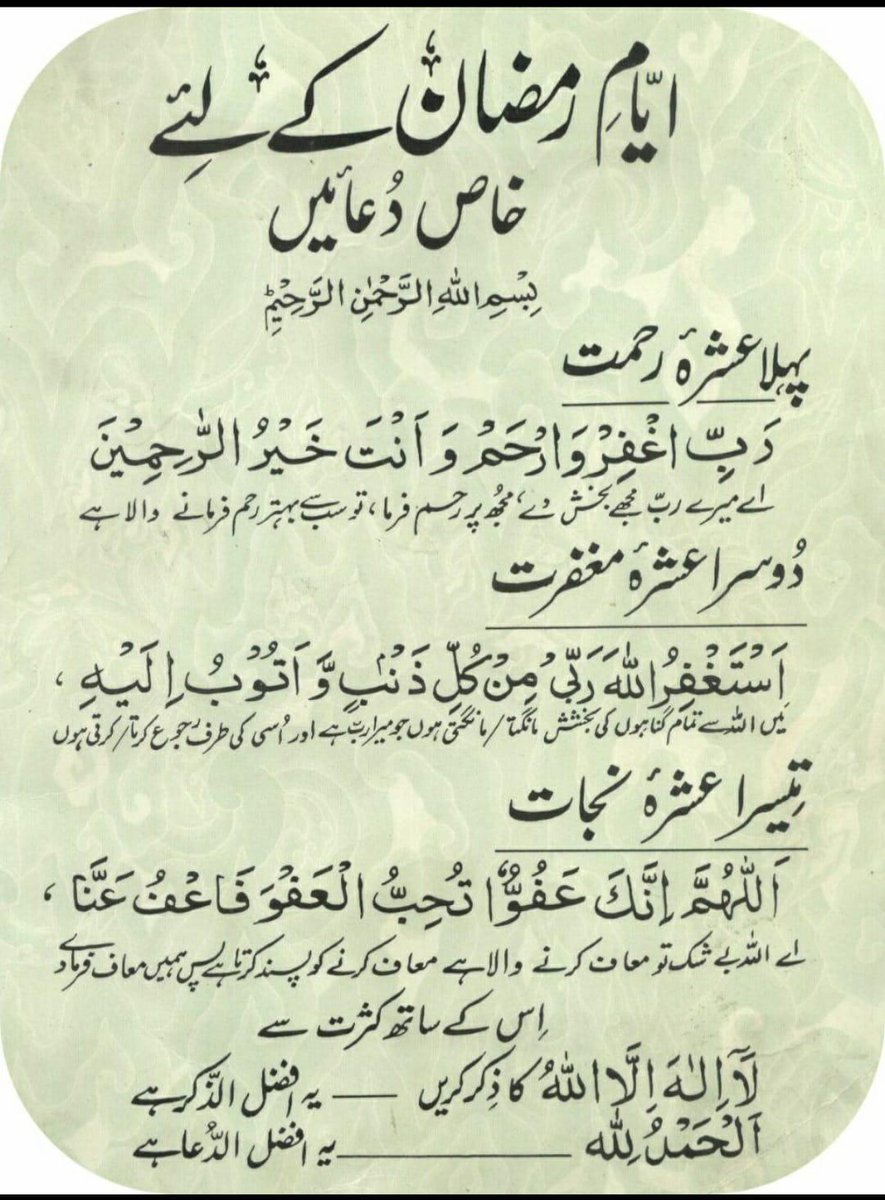 ایّامِ رمضان کے لِئے
خاص دُعائیں
بِسْمِ اللهِ الرَّحْمٰنِ الرَّحِیْمِؕ
پہلا عشرۂ رحمت
رَبِّ اغْفِرْ وَارْحَمْ وَ اَنْتَ خَیْرُ الرّٰحِمِیْنَ
اے میرے ربّ مجھے بخش دے، مجھ پر رحم فرما، تو سب سے بہتر رحم فرمانے والا ہے
دُوسرا عشرۂ مغفرت
اَسْتَغْفِرُ اللهَ رَبِّیْ مِنْ کُلِّ ذَنْۢبٍ وَّ اَتُوْبُ اِلَیْهِ ،
میں اللہ سے تمام گناہوں کی بخشش مانگتا / مانگتی ہوں جو میرا ربّ ہے اور اُسی کی طرف رجوع کرتا / کرتی ہوں
تِیسرا عشرۂ نجات
اَللّٰهُمَّ اِنَّکَ عَفُوٌّ تُحِبُّ الْعَفْوَ فَاعْفُ عَنَّا ،
اے اللہ بے شک تو معاف کرنے والا ہے معاف کرنے کو پسند کرتا ہے پس ہمیں معاف فرما دے
اِس کے ساتھ کثرت سے
لَآ اِلٰهَ اِلَّا اللهُ کا ذِکر کریں — یہ افضل الذّکر ہے
اَلْحَمْدُ لِلّٰه — یہ افضل الدُّعا ہے